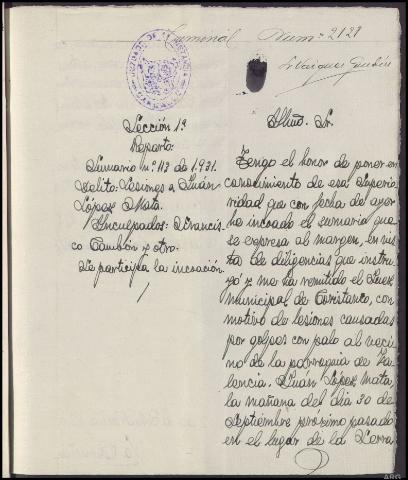 Criminal Num-2121
Seccion 1ª
Reparto
Sumario n.º 113 de 1.931.
Delito: Lesiones a Juán
López Mata.
Inculpados: Francis-
co Cambón y otro.
Se participa la incoación.
Iltmo. Sr.
Tengo el honor de poner en
conocimiento de esa Superio-
ridad que con fecha de ayer
he incoado el sumario que
se expresa al margen, en vis-
ta de diligencias que instru-
yó y me ha remitido el Juez
municipal de Coristanco, con
motivo de lesiones causadas
por golpes con palo al veci-
no de la parroquia de Va-
lencia, Juán López Mata,
la mañana del dia 30 de
Septiembre próximo pasado
en el lugar de la